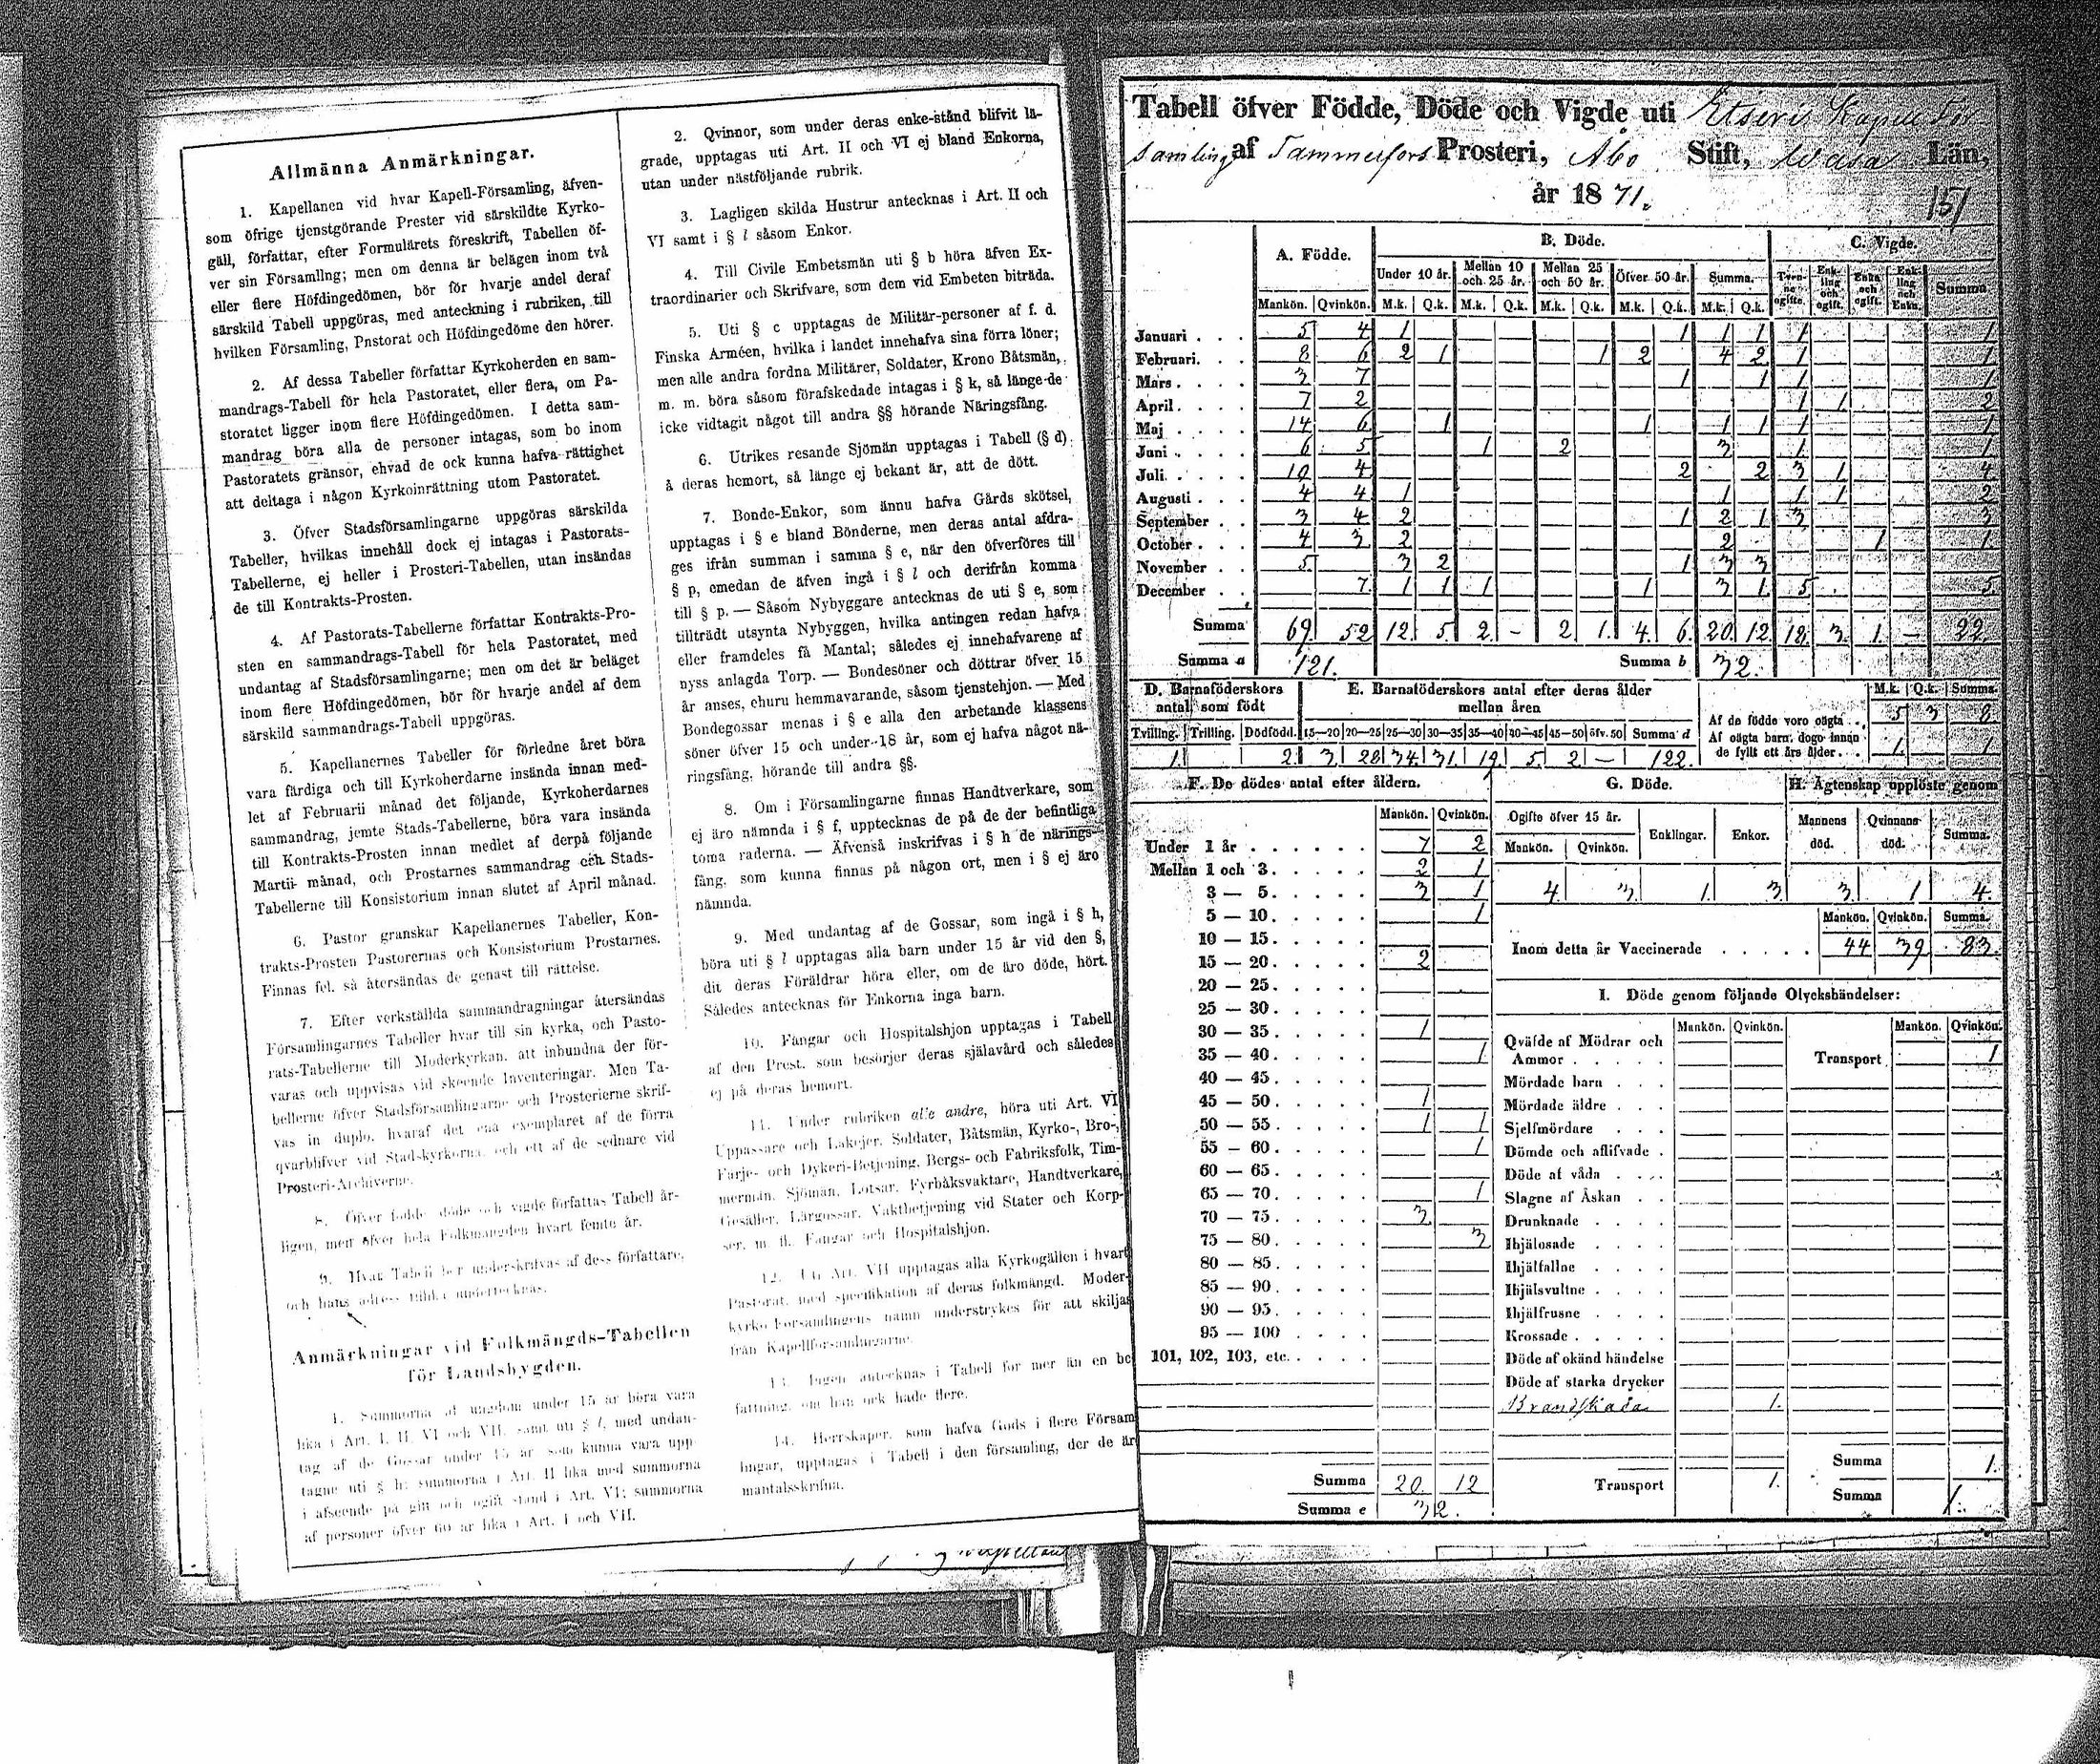 Allmänna Anmärkningar.
1. Kapellanen vid hvar Kapell-Församling, äfven-
som öfrige tjenstgörande Prester vid särskildte Kyrko-
gäll, författar, efter Formulärets föreskrift, Tabellen öf-
ver sin Församling; men om denna är belägen inom två
eller flere Höfdingedömen, bör för hvarje andel deraf
särskild Tabell uppgöras, med anteckning i rubriken, till
hvilken Församling, Pastorat och Höfdingedöme den hörer.
2. Af dessa Tabeller författar Kyrkoherden en sam-
mandrags-Tabell för hela Pastoratet, eller flera, om Pa-
storatet ligger inom flere Höfdingedömen. I detta sam-
mandrag böra alla de personer intagas, som bo inom
Pastoratets gränsor, ehvad de ock kunna hafva rättighet
att deltaga i någon Kyrkoinrättning utom Pastoratet.
3. Öfver Stadsförsamlingarne uppgöras särskilda
Tabeller, hvilkas innehåll dock ej intagas i Pastorats-
Tabellerne, ej heller i Prosteri-Tabellen, utan insändas
de till Kontrakts-Prosten.
4. Af Pastorats-Tabellerne författar Kontrakts-Pro-
sten en sammandrags-Tabell för hela Pastoratet, med
undantag af Stadsförsamlingarne; men om det är beläget
inom flere Höfdingedömen, bör för hvarje andel af dem
särskild sammandrags-Tabell uppgöras.
5. Kapellanernes Tabeller för förledne året böra
vara färdiga och till Kyrkoherdarne insända innan med-
let af Februarii månad det följande, Kyrkoherdarnes
sammandrag, jemte Stads-Tabellerne, böra vara insända
till Kontrakts-Prosten innan medlet af derpå följande
Martii månad, och Prostarnes sammandrag och Stads-
Tabellerne till Konsistorium innan slutet af April månad.
6. Pastor granskar Kapellanernes Tabeller, Kon-
trakts-Prosten Pastorernas och Konsistorium Prostarnes.
Finnas fel, så återsändas de genast till rättelse.
7. Efter verkställda sammandragningar återsändas
Församlingarnes Tabeller hvar till sin kyrka, och Pasto-
rats-Tabellerne till Moderkyrkan, att inbundna der för-
varas och uppvisas vid skeende Inventeringar. Men Ta-
bellerne öfver Stadsförsamlingarne och Prosterierne skrif-
vas in duplo, hvaraf det ena exemplaret af de förra
qvarblifver vid Stadskyrkorna, och ett af de sednare vid
Prosteri-Archiverne.
8. Öfver födde, döde och vigde författas Tabell år-
ligen, men öfver hela Folkmängden hvart femte år.
9. Hvar Tabell bör underskrifvas af dess författare,
och hans adress tillika undertecknas.
Anmärkningar vid Folkmängds-Tabellen
för Landsbygden.
1. Summorna af ungdom under 15 år böra vara
lika i Art. I, II, VI och VII, samt uti § l, med undan-
tag af de Gossar under 15 år som kunna vara upp-
tagne uti § h; summorna i Art. II lika med summorna
i afseende på gift och ogift stånd i Art. VI; summorna
af personer öfver 60 år lika i Art. I och VII.
2. Qvinnor, som under deras enke-stånd blifvit lä-
grade, upptagas uti Art. II och VI ej bland Enkorna,
utan under nästföljande rubrik.
3. Lagligen skilda Hustrur antecknas i Art. II och
VI samt i § l såsom Enkor.
4. Till Civile Embetsmän uti § b höra äfven Ex-
traordinarier och Skrifvare, som dem vid Embeten biträda.
5. Uti § c upptagas de Militär-personer af f. d.
Finska Arméen, hvilka i landet innehafva sina förra löner;
men alle andra fordna Militärer, Soldater, Krono Båtsmän,
m. m. böra såsom förafskedade intagas i § k, så länge de
icke vidtagit något till andra §§ hörande Näringsfång.
6. Utrikes resande Sjömän upptagas i Tabell (§ d)
å deras hemort, så länge ej bekant är, att de dött.
7. Bonde-Enkor, som ännu hafva Gårds skötsel,
upptagas i § e bland Bönderne, men deras antal afdra-
ges ifrån summan i samma § e, när den öfverföres till
§ p, emedan de äfven ingå i § l och derifrån komma
till § p. — Såsom Nybyggare antecknas de uti § e, som
tillträdt utsynta Nybyggen, hvilka antingen redan hafva
eller framdeles få Mantal; således ej innehafvarene af
nyss anlagda Torp. — Bondesöner och döttrar öfver 15
år anses, ehuru hemmavarande, såsom tjenstehjon. — Med
Bondegossar menas i § e alla den arbetande klassens
söner öfver 15 och under 18 år, som ej hafva något nä-
ringsfång, hörande till andra §§.
8. Om i Församlingarne finnas Handtverkare, som
ej äro nämnda i § f, upptecknas de på de der befintliga
toma raderna. — Äfvenså inskrifvas i § h de närings-
fång, som kunna finnas på någon ort, men i § ej äro
nämnda.
9. Med undantag af de Gossar, som ingå i § h,
böra uti § l upptagas alla barn under 15 år vid den §,
dit deras Föräldrar höra eller, om de äro döde, hört.
Således antecknas för Enkorna inga barn.
10. Fångar och Hospitalshjon upptagas i Tabell
af den Prest, som besörjer deras själavård och således
ej på deras hemort.
11. Under rubriken alle andre, höra uti Art. VI
Uppassare och Lakejer, Soldater, Båtsmän, Kyrko-, Bro-,
Färje- och Dykeri-Betjening, Bergs- och Fabriksfolk, Tim-
mermän, Sjömän, Lotsar, Fyrbåksvaktare, Handtverkare,
Gesäller, Lärgossar, Vaktbetjening vid Stater och Korp-
ser, m. fl. Fångar och Hospitalshjon.
12. Uti Art. VII upptagas alla Kyrkogällen i hvart
Pastorat, med specifikation af deras folkmängd. Moder-
kyrko Församlingens namn understrykes för att skiljas
från Kapellförsamlingarne.
13. Ingen antecknas i Tabell for mer än en be
fattning, om han ock hade flere.
14. Herrskaper, som hafva Gods i flere Försam
lingar, upptagas i Tabell i den församling, der de är
mantalsskrifna.
Tabell öfver Födde, Döde och Vigde uti Etseri Kapell För
samling af Tammerfors Prosteri, Åbo Stift, Wasa Län,
år 1871.
151
A. Födde. B. Döde. C. Vigde.
Under 10 år. Mellan 10 och 25 år. Mellan 25 och 50 år. Öfver 50 år. Summa. Enkling och ogift. Enka och ogift. Enkling och Enka. Summa.
Mankön. Qvinkön. M.k. Q.k. M.k. Q.k. M.k. Q.k. M.k. Q.k. M.k. Q.k.
Januari . . . 5 4 1 1 1 1 1 1
Februari. . . 8 6 2 1 1 2 4 2 1 1
Mars . . . . 3 7 1 1 1 1
April . . . . 7 2 1 1 2
Maj . . . . 14 6 1 1 1 1 1 1
Juni . . . . 6 5 1 2 3 1 1
Juli . . . . 10 4 2 2 3 1 4
Augusti . . . 4 4 1 1 1 1 2
September . . 3 4 2 1 2 1 3 3
October . . . 4 3 2 2 1 1
November . . 5 3 2 1 3 3
December . . 7 1 1 1 1 3 1 5 5
Summa 69 52 12 5 2 - 2 1 4 6 20 12 18 3 1 - 22
Summa a 121. Summa b 32.
D. Barnaföderskors antal, som födt
Tvilling. Trilling. Dödfödd.
1 2
E. Barnaföderskors antal efter deras ålder mellan åren
15—20 20—25 25—30 30—35 35—40 40—45 45—50 öfv. 50 Summa d
3 28 34 31 19 5 2 — 122.
M.k. Q.k. Summa
Af de födde voro oägta . . 5 3 8
Af oägta barn dogo innan
de fyllt ett års ålder . . 1 1
F. De dödes antal efter åldern.
Mankön. Qvinkön.
Under 1 år . . . . . . 7 2
Mellan 1 och 3 . . . . . 2 1
3 — 5 . . . . . 3 1
5 — 10 . . . . . 1
10 — 15 . . . . .
15 — 20 . . . . . 2
20 — 25 . . . . .
25 — 30 . . . . .
30 — 35 . . . . . 1
35 — 40 . . . . . 1
40 — 45 . . . . .
45 — 50 . . . . . 1
50 — 55 . . . . . 1 1
55 — 60 . . . . . 1
60 — 65 . . . . .
65 — 70 . . . . . 1
70 — 75 . . . . . 3
75 — 80 . . . . . 3
80 — 85 . . . . .
85 — 90 . . . . .
90 — 95 . . . . .
95 — 100 . . . .
101, 102, 103, etc. . . . .
Summa 20 12
Summa e 32.
G. Döde.
Ogifte öfver 15 år. Enklingar. Enkor.
Mankön. Qvinkön.
4 3 1 3
H. Ägtenskap upplöste genom
Mannens död. Qvinnans död. Summa.
3 1 4
Mankön. Qvinkön. Summa.
Inom detta år Vaccinerade . . . . . 44 39 83
I. Döde genom följande Olyckshändelser:
Mankön. Qvinkön. Mankön. Qvinkön.
Qväfde af Mödrar och
Ammor . . . . .
Transport 1
Mördade barn . . .
Mördade äldre . . .
Sjelfmördare . . .
Dömde och aflifvade .
Döde af våda . . . .
Slagne af Åskan . .
Drunknade . . . .
Ihjälosade . . . .
Ihjälfallne . . . .
Ihjälsvultne . . . .
Ihjälfrusne . . . .
Krossade . . . . .
Döde af okänd händelse
Döde af starka drycker
Brandskada 1.
Summa 1.
Transport 1.
Summa 1.